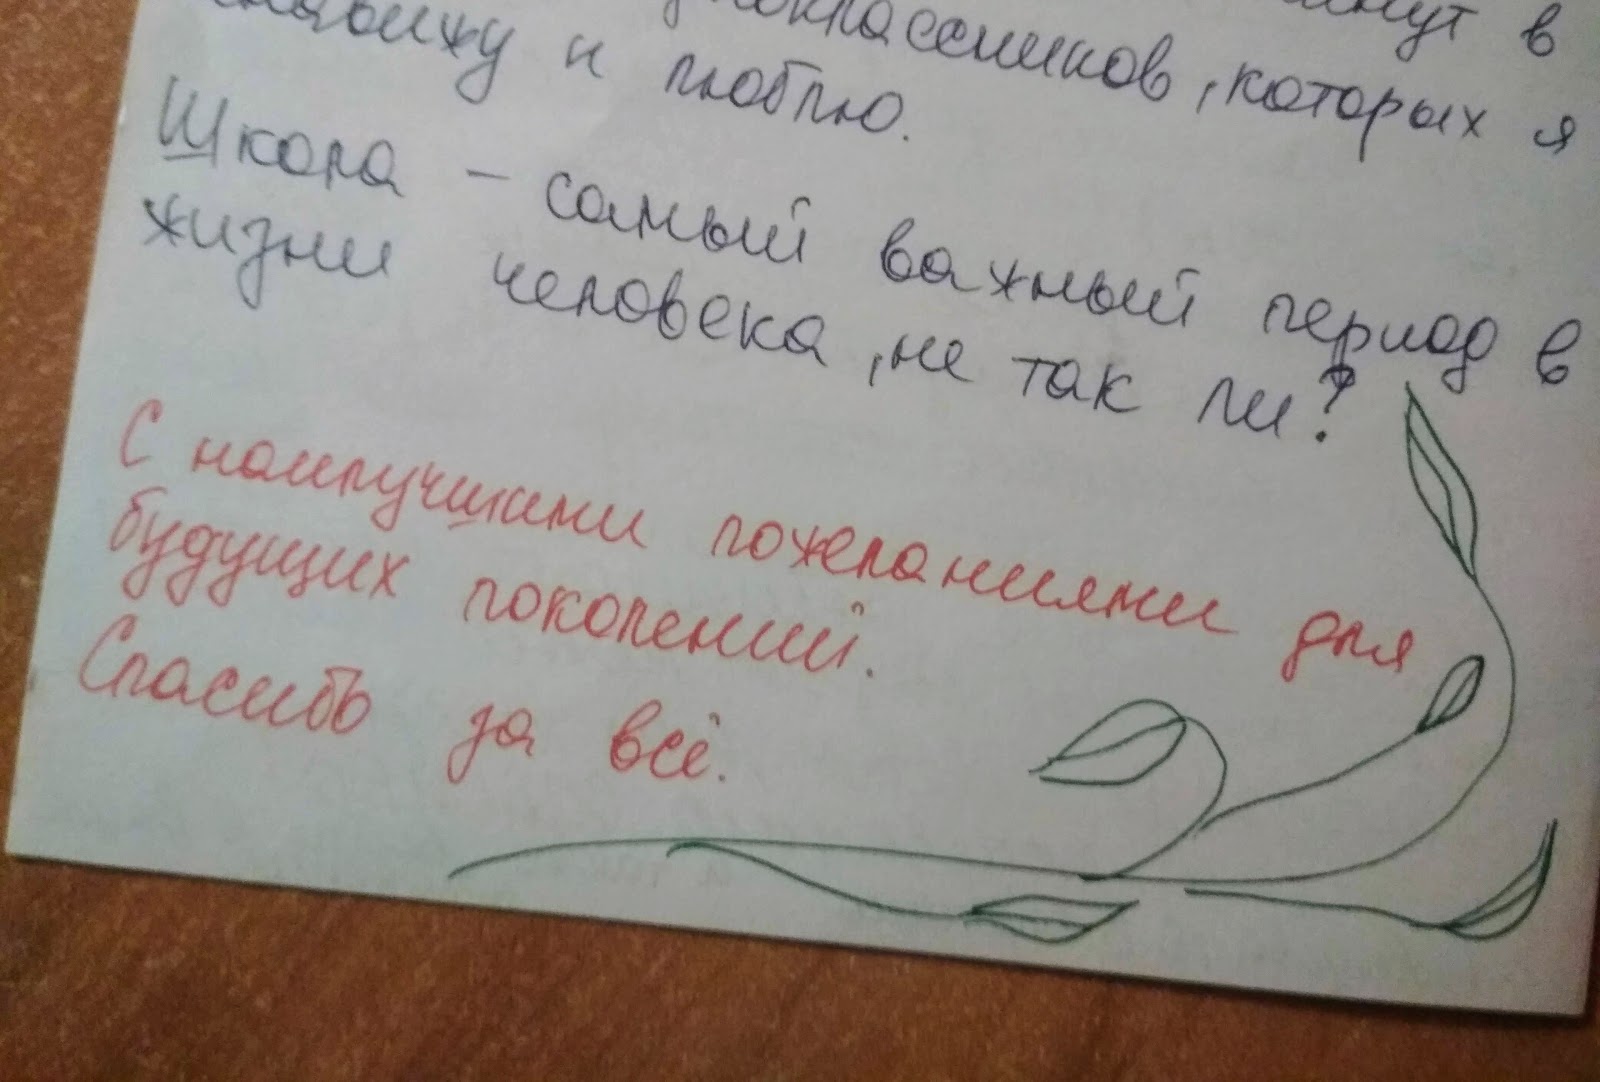 в
одноклассников, которых я
ненавижу и люблю.
Школа – самый важный период в
жизни человека, не так ли?
С наилучшими пожеланиями для
будущих поколений.
Спасибо за всё.